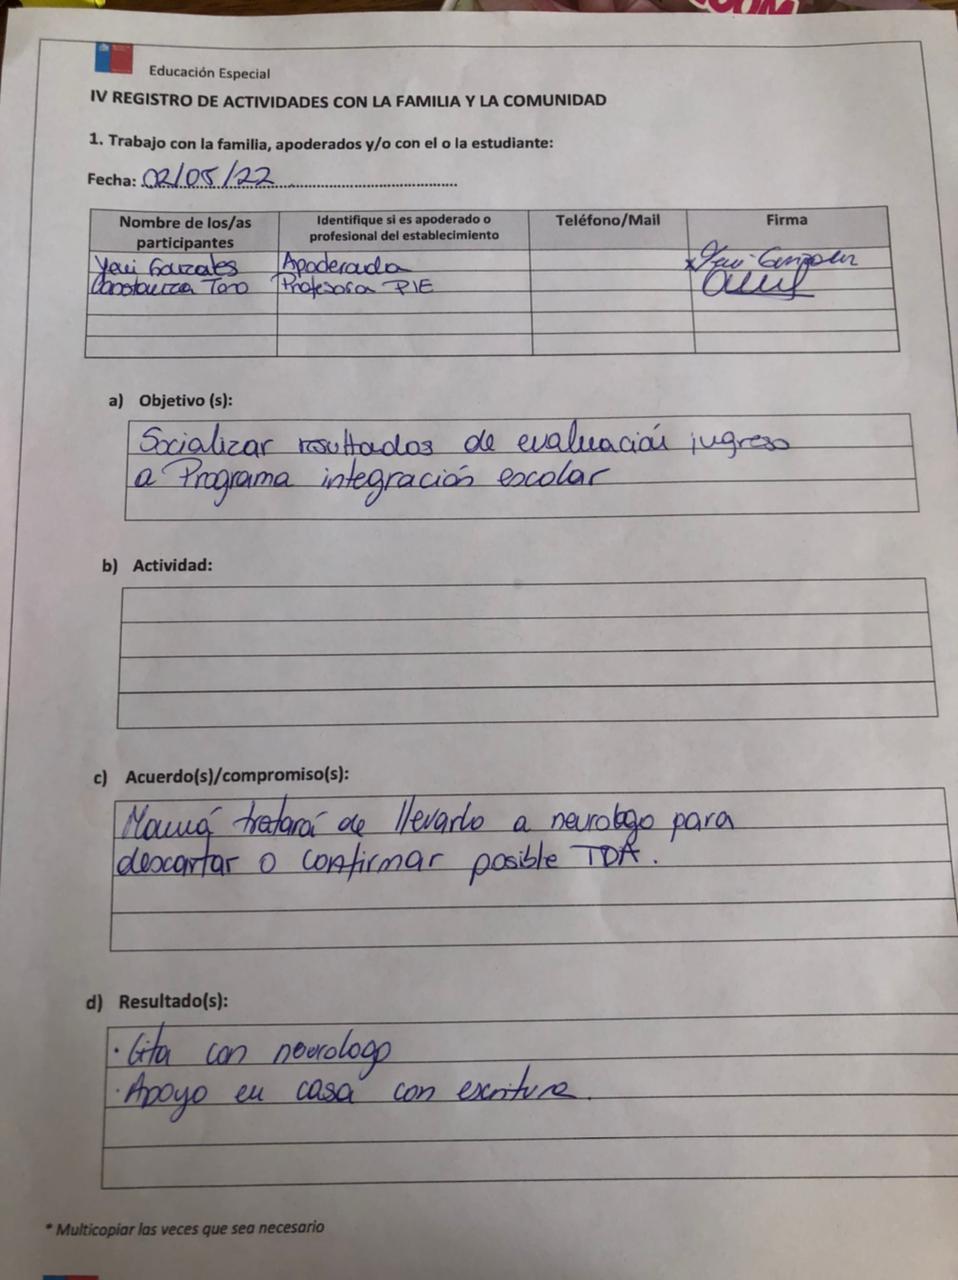 Educación Especial
IV REGISTRO DE ACTIVIDADES CON LA FAMILIA Y LA COMUNIDAD
1. Trabajo con la familia, apoderados y/o con el o la estudiante:
Fecha: 02/05/22
Nombre de los/as participantes
Identifique si es apoderado o profesional del establecimiento
Teléfono/Mail
Firma
Yeni Gonzales Apoderada
Constanza Toro Profesora PIE
a) Objetivo (s):
Socializar resultados de evaluación ingreso
a Programa integración escolar
b) Actividad:
c) Acuerdo(s)/compromiso(s):
Mamá tratará de llevarlo a neurologo para
descartar o confirmar posible TDA.
d) Resultado(s):
· Cita con neurologo
· Apoyo en casa con escritura.
* Multicopiar las veces que sea necesario